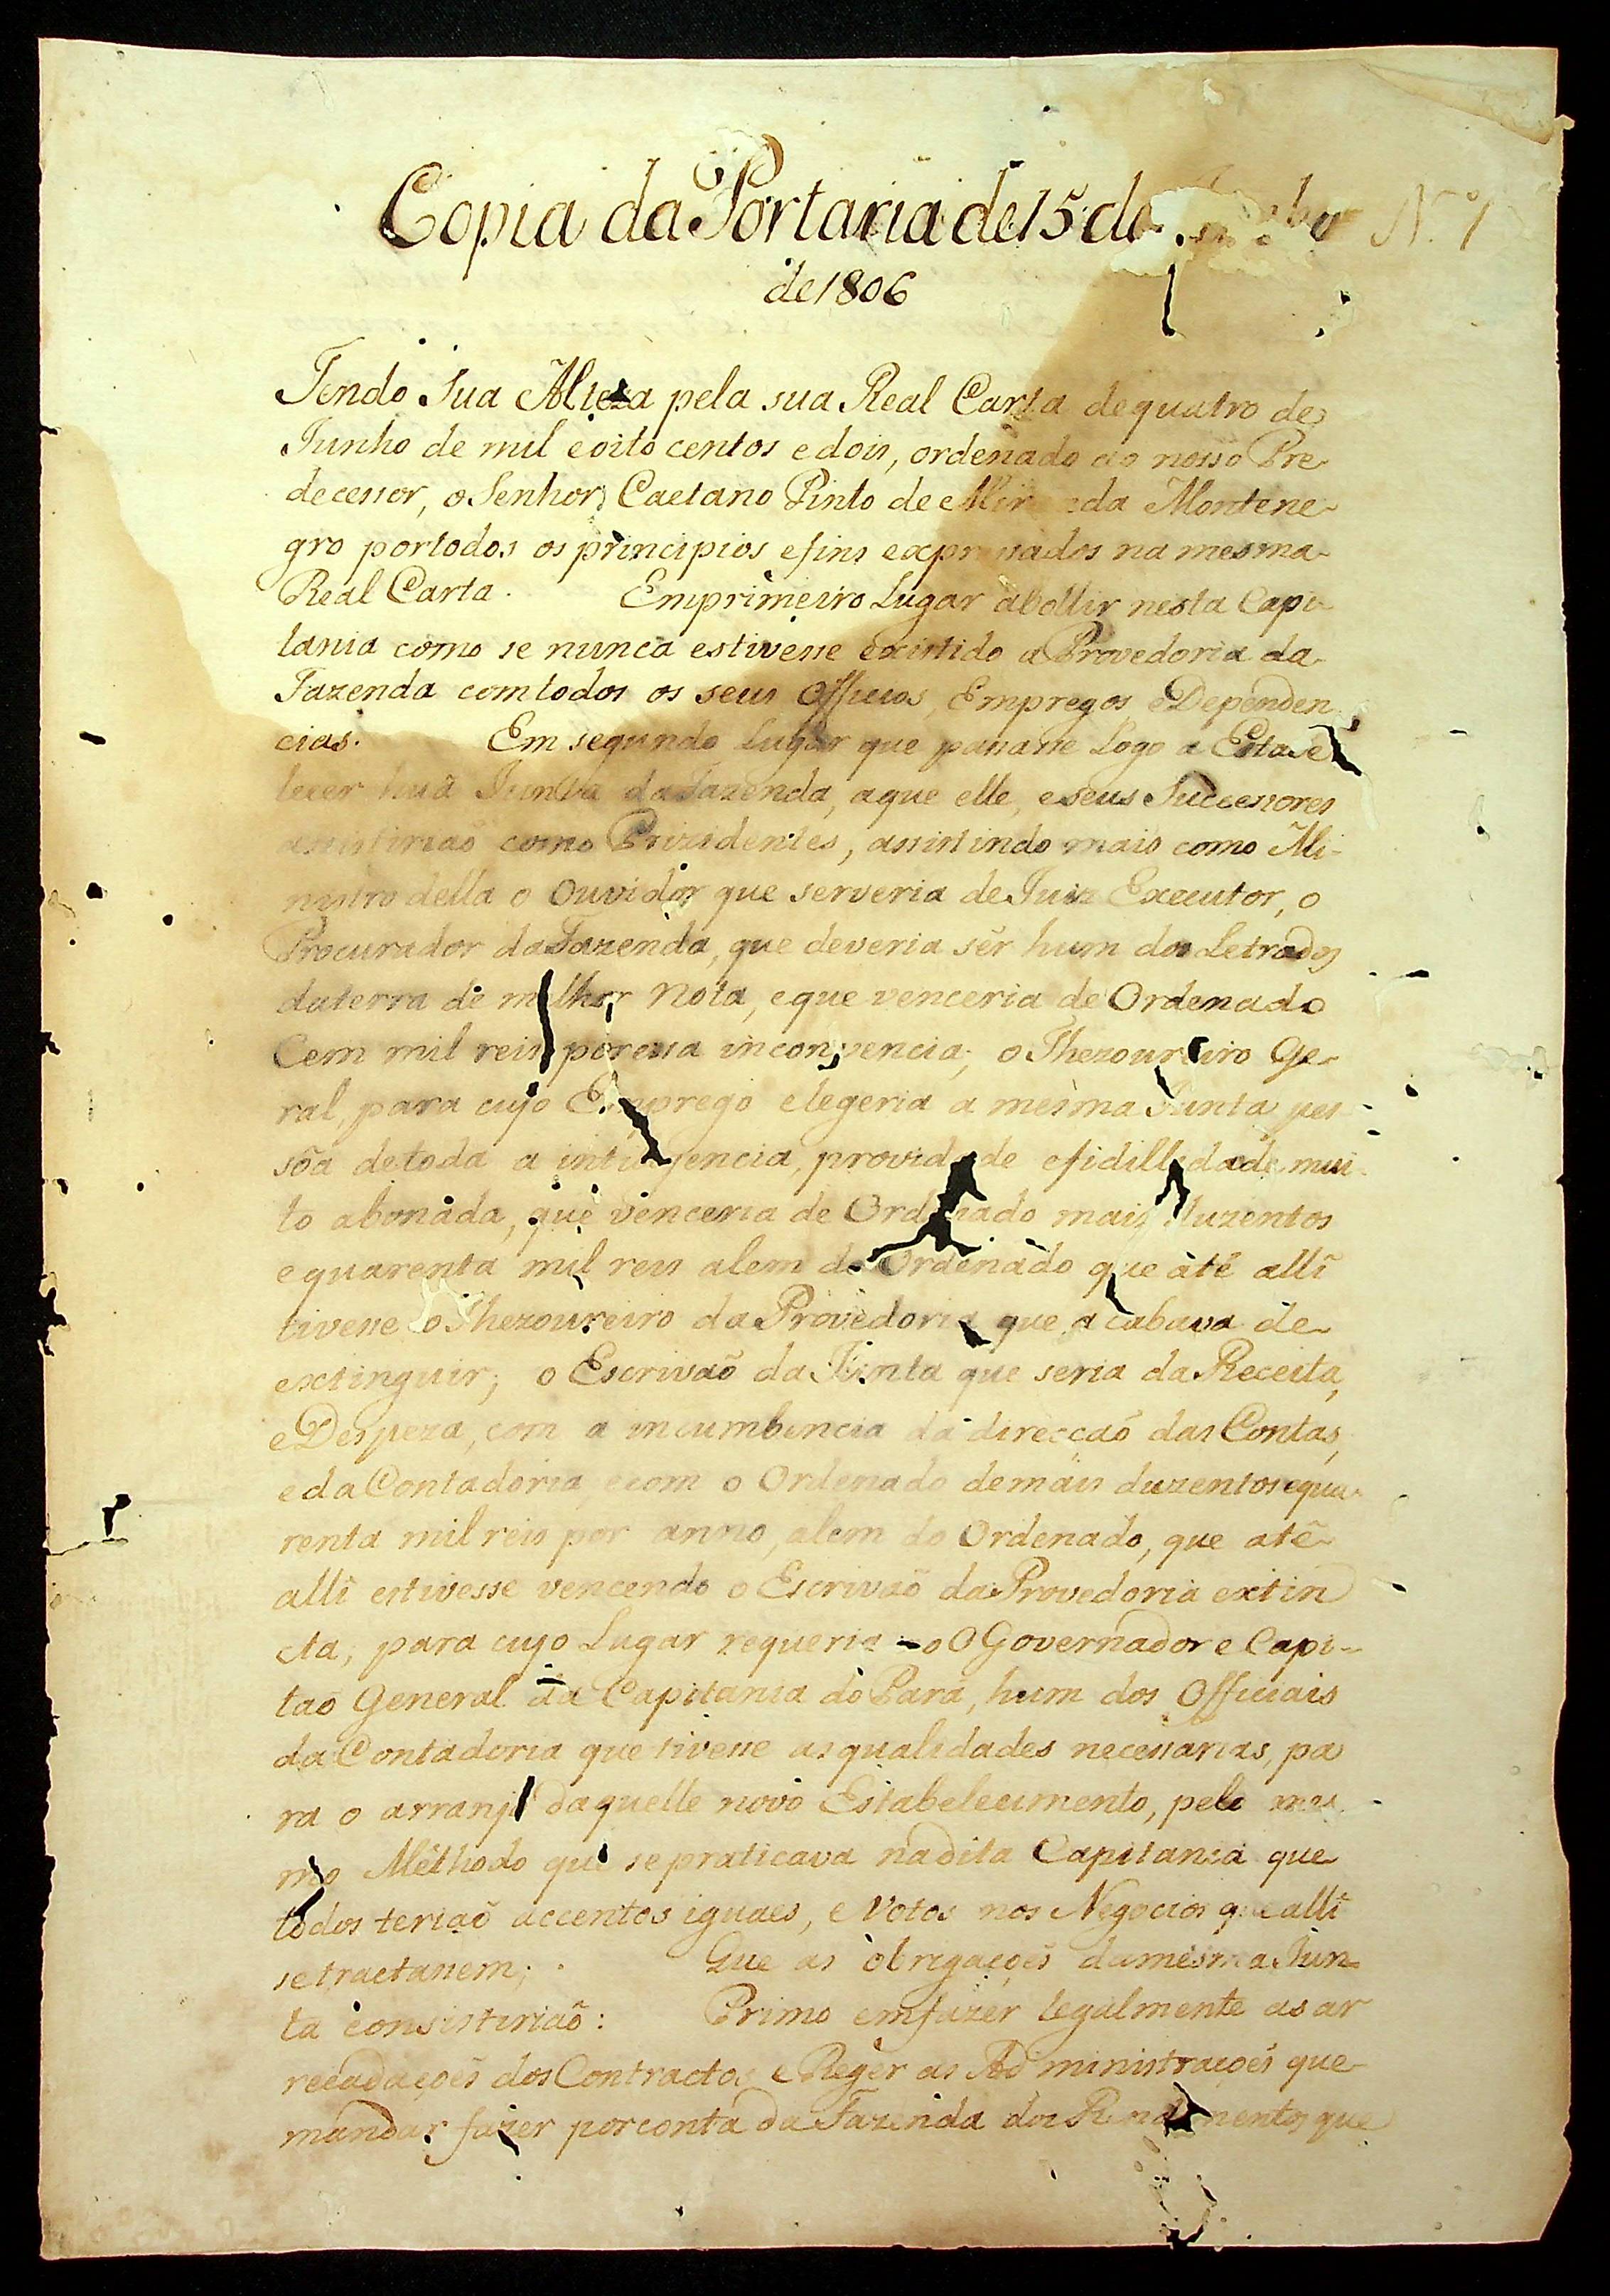 Copia da Portaria de 15 de
N.º 1
de 1806
Tendo Sua Alteza pela sua Real Carta de quatro de
Junho de mil e oito centos e dois, ordenado ao nosso Pre-
decessor, o Senhor Caetano Pinto de Miranda Montene-
gro por todos os principios e fins expressados na mesma
Real Carta. Em primeiro Lugar abollir nesta Capi-
tania como se nunca estivesse existido a Provedoria da
Fazenda com todos os seus Officios, Empregos e Dependen
cias. Em segundo Lugar que passasse Logo a Estabe
lecer huã Junta da Fazenda, a que elle, e seus Successores
assistiriaõ como Prizidentes, assistindo mais como Mi-
nistro della o Ouvidor que serveria de Juiz Executor, o
Procurador da Fazenda, que deveria sêr hum dos Letrados
da terra de milhor Nota, e que venceria de Ordenado
Cem mil reis por essa; o Thezoureiro Ge-
ral, para cujo Emprego elegeria a mesma Junta pes
sôa de toda a, providade e fidillidade mui
to abonada, que venceria de Ordenado mais duzentos
e quarenta mil reis alem do Ordenado que atê alli
tivesse o Thezoureiro da Provedoria que acabava de
extinguir; o Escrivaõ da Junta que seria da Receita,
e Despeza, com a incumbencia da direcçaõ das Contas,
e da Contadoria, e com o Ordenado de mais duzentos e qua-
renta mil reis por anno, alem do Ordenado, que atê
alli estivesse vencendo o Escrivaõ da Provedoria extin
cta; para cujo Lugar requeria - o O Governador e Capi-
taõ General da Capitania do Pará, hum dos Officiais
da Contadoria que tivesse as qualidades necessarias, pa
ra o arranjo daquelle novo Estabelecimento, pelo mes
mo Méthodo que se praticava na dita Capitania que
todos teriaõ accentos iguaes, e Votos nos Negocios que alli
se tractassem; Que as obrigaçoẽs da mesma Jun-
ta consistiriaõ: Primo em fazer legalmente as ar
recadaçoẽs dos Contractos e Reger as Administraçoẽs que
mandar fazer por conta da Fazenda dos Rendimentos que